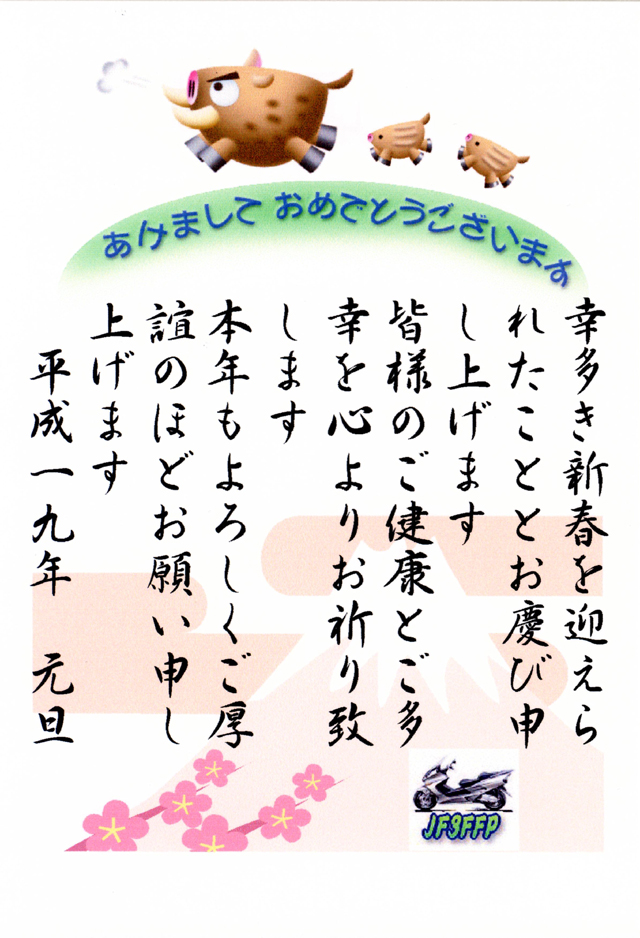 あけまして おめでとうございます
幸多き新春を迎えら
れたこととお慶び申
し上げます
皆様のご健康とご多
幸を心よりお祈り致
します
本年もよろしくご厚
誼のほどお願い申し
上げます
平成一九年 元旦
JF9FFP